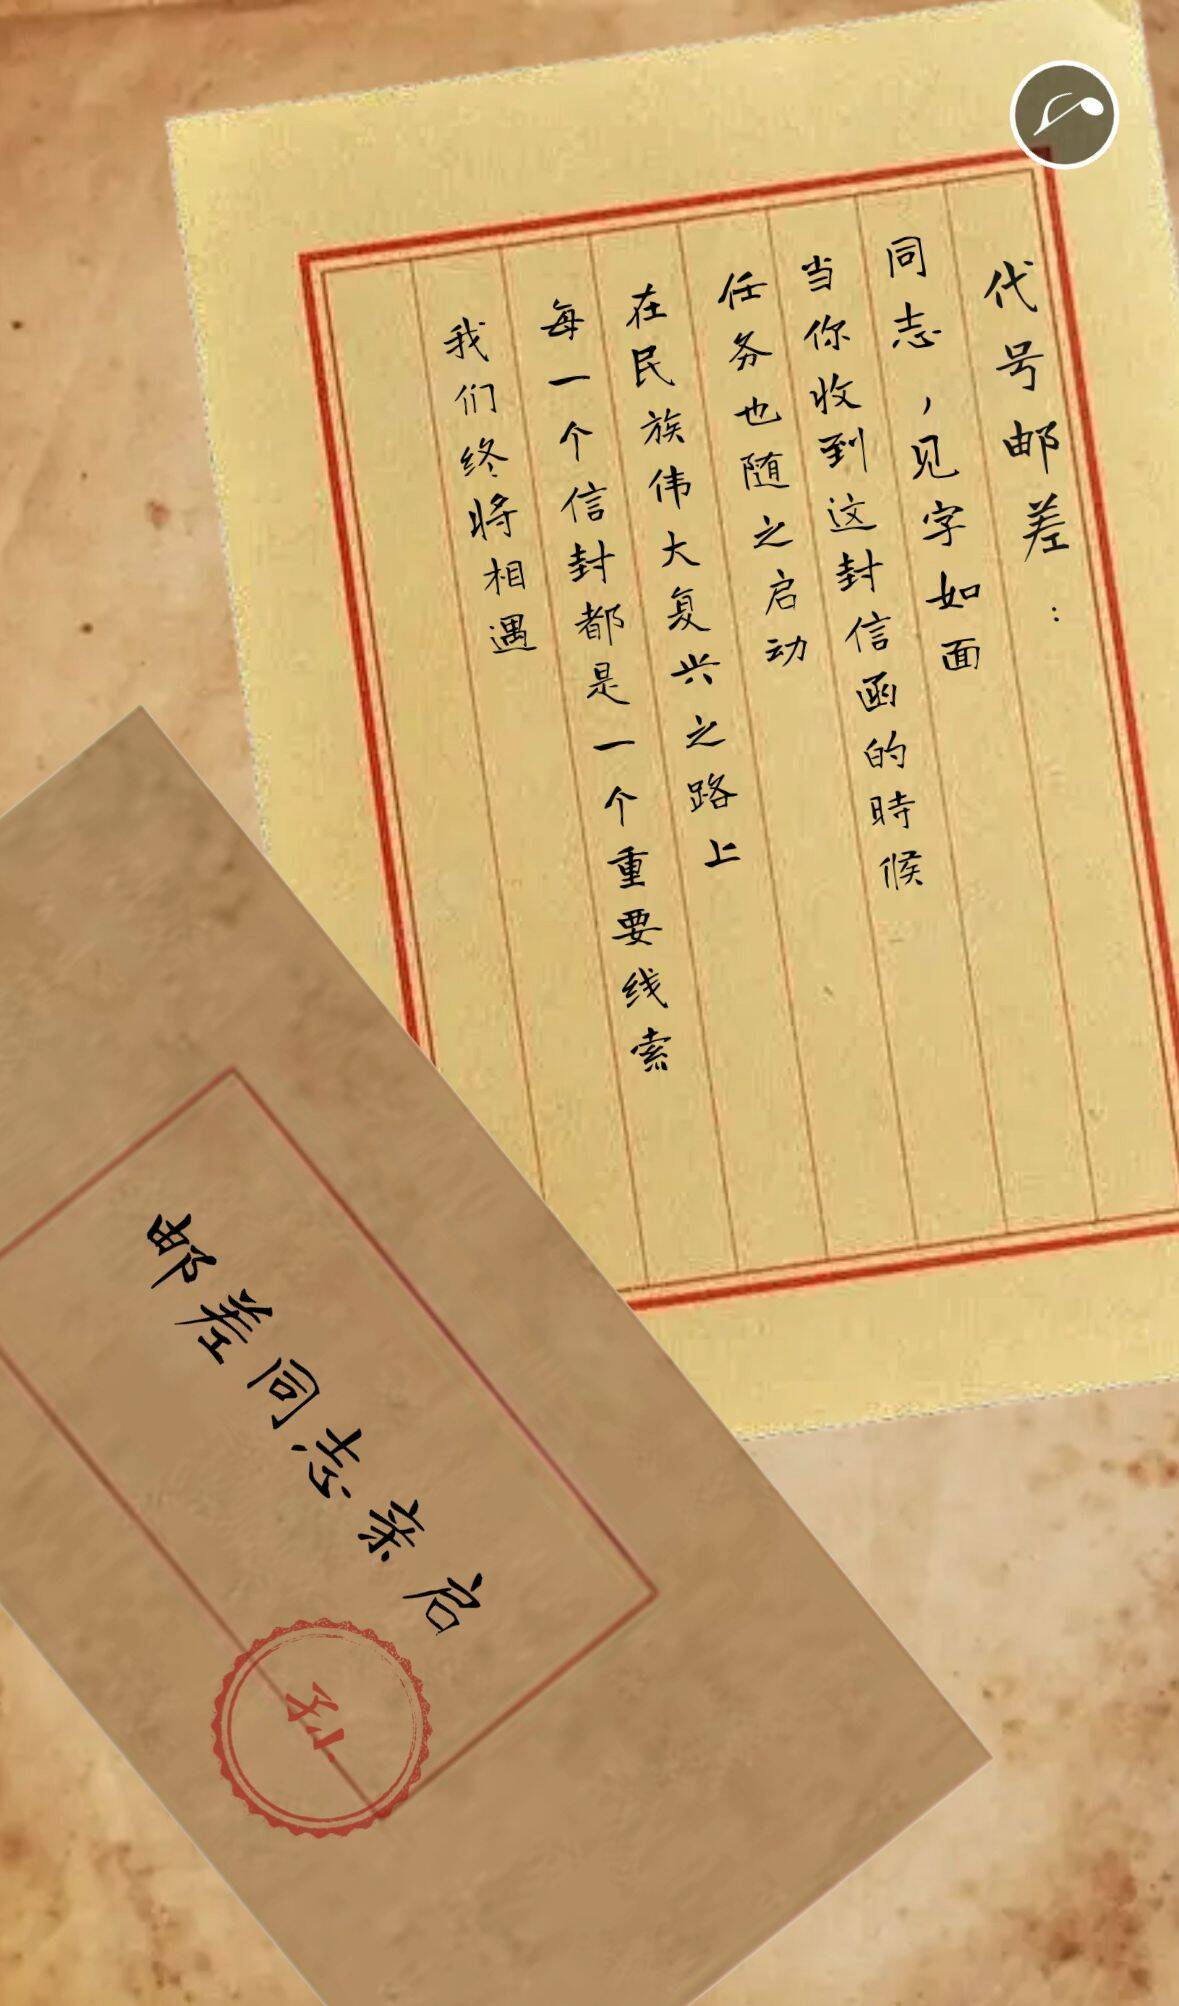 代号邮差：
同志，见字如面
当你收到这封信函的時候
任务也随之启动
在民族伟大复兴之路上
每一个信封都是一个重要线索
我们终将相遇
邮差同志亲启
孙